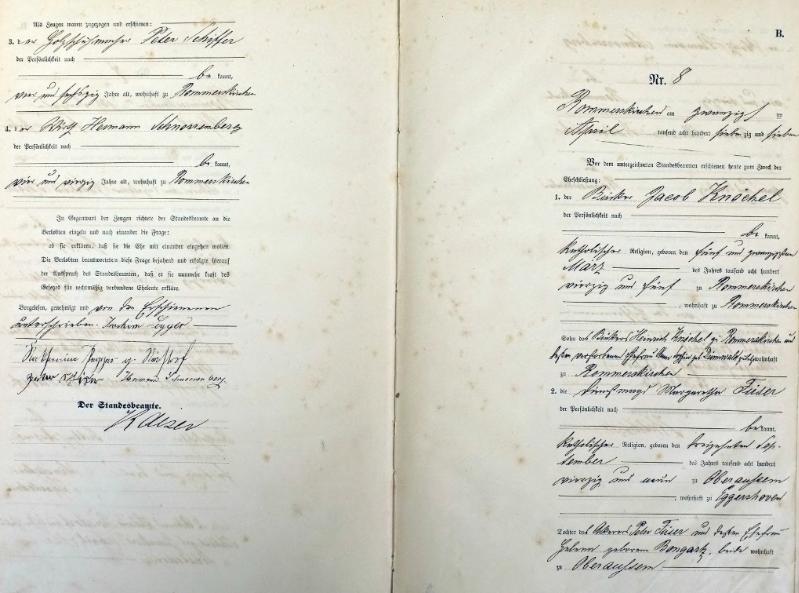 Als Zeugen waren zugezogen und erschienen:
3. der Holzschuhmacher Peter Schiffer
der Persönlichkeit nach
be kannt,
vier und sechszig Jahre alt, wohnhaft zu Rommerskirchen
4. der Wirth Hermann Schnorrenberg
der Persönlichkeit nach
be kannt,
vier und vierzig Jahre alt, wohnhaft zu Rommerskirchen
In Gegenwart der Zeugen richtete der Standesbeamte an die
Verlobten einzeln und nach einander die Frage:
ob sie erklären, daß sie die Ehe mit einander eingehen wollen.
Die Verlobten beantworteten diese Frage bejahend und erfolgte hierauf
der Ausspruch des Standesbeamten, daß er sie nunmehr kraft des
Gesetzes für rechtmäßig verbundene Eheleute erkläre.
Vorgelesen, genehmigt und von den Erschienenen
unterschrieben.
Peter Schiffer Hermann Schnorrenberg
Der Standesbeamte.
Kaiser
B.
Nr. 8
Rommerskirchen am zwanzig
April tausend acht hundert sieben zig und sieben
Vor dem unterzeichneten Standesbeamten erschienen heute zum Zweck der
Eheschließung:
1. der Bäcker Jacob Knöchel
der Persönlichkeit nach
be kannt,
katholischer Religion, geboren den fünf und zwanzigsten
März des Jahres tausend acht hundert
vierzig und fünf zu Rommerskirchen
, wohnhaft zu Rommerskirchen
Sohn des Bäckers Heinrich Knöchel zu Rommerskirchen und
dessen verstorbenen Ehefrau wohnhaft
zu Rommerskirchen
2. die Dienstmagd Margaretha Füser
der Persönlichkeit nach
be kannt,
katholischer Religion, geboren den dreizehnten Sep-
tember des Jahres tausend acht hundert
vierzig und neun zu Oberaussem
, wohnhaft zu Eggershoven
Tochter des Ackerers Peter Füser und dessen Ehefrau
Helena geborene Bongartz, beide wohnhaft
zu Oberaussem